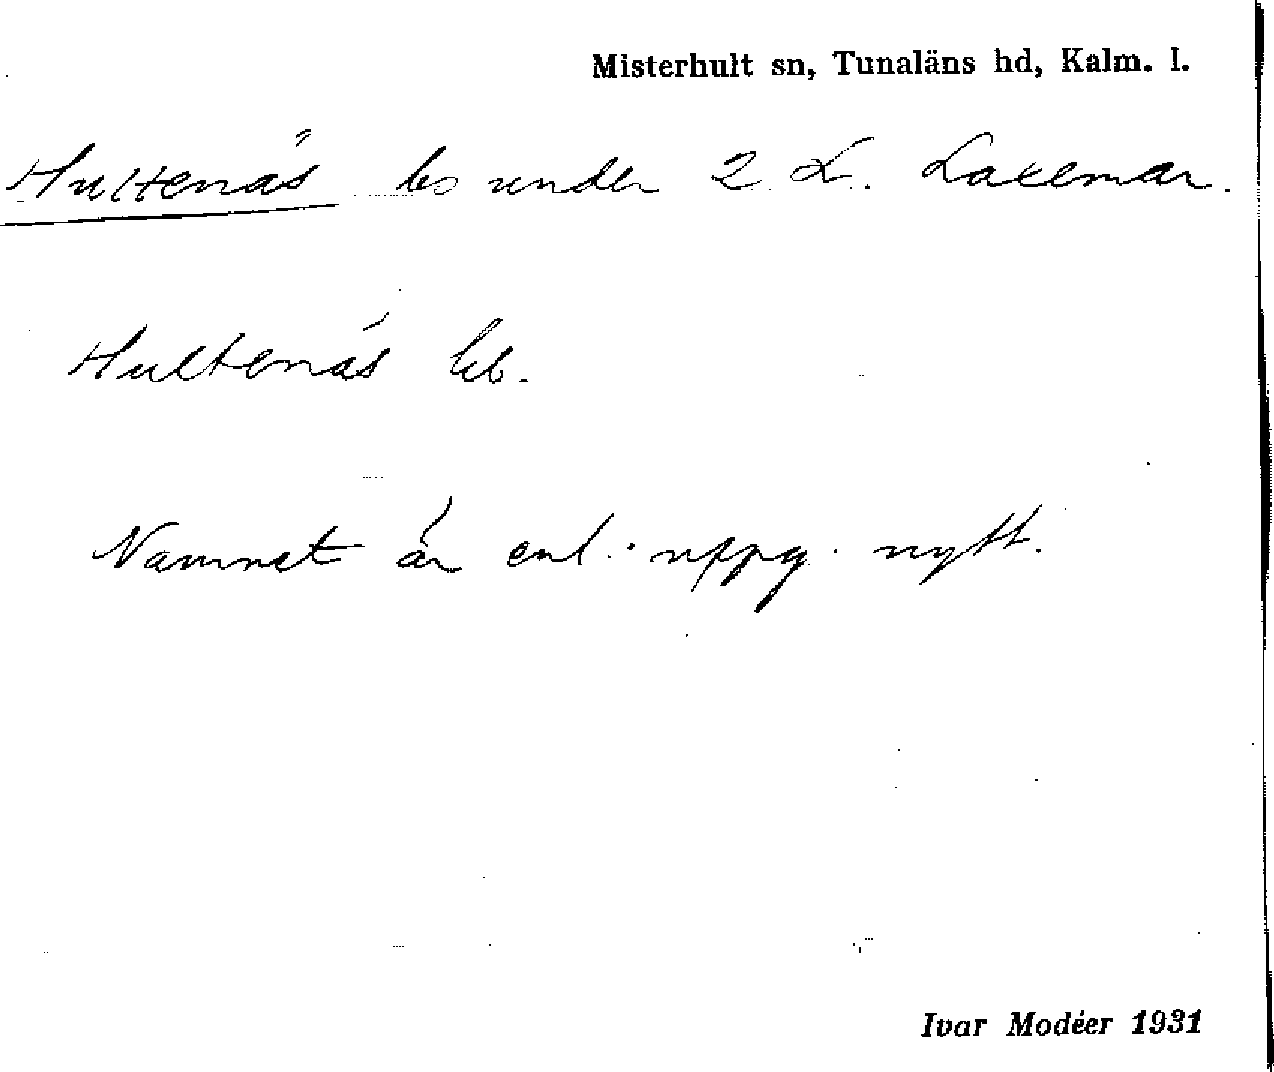 Misterhult sn, Tunaläns hd, Kalm. l.
Hultenäs bs under 2 L. Laxemar.
Hultenäs kb.
Namnet är enl. uppg. nytt.
Ivar Modéer 1931